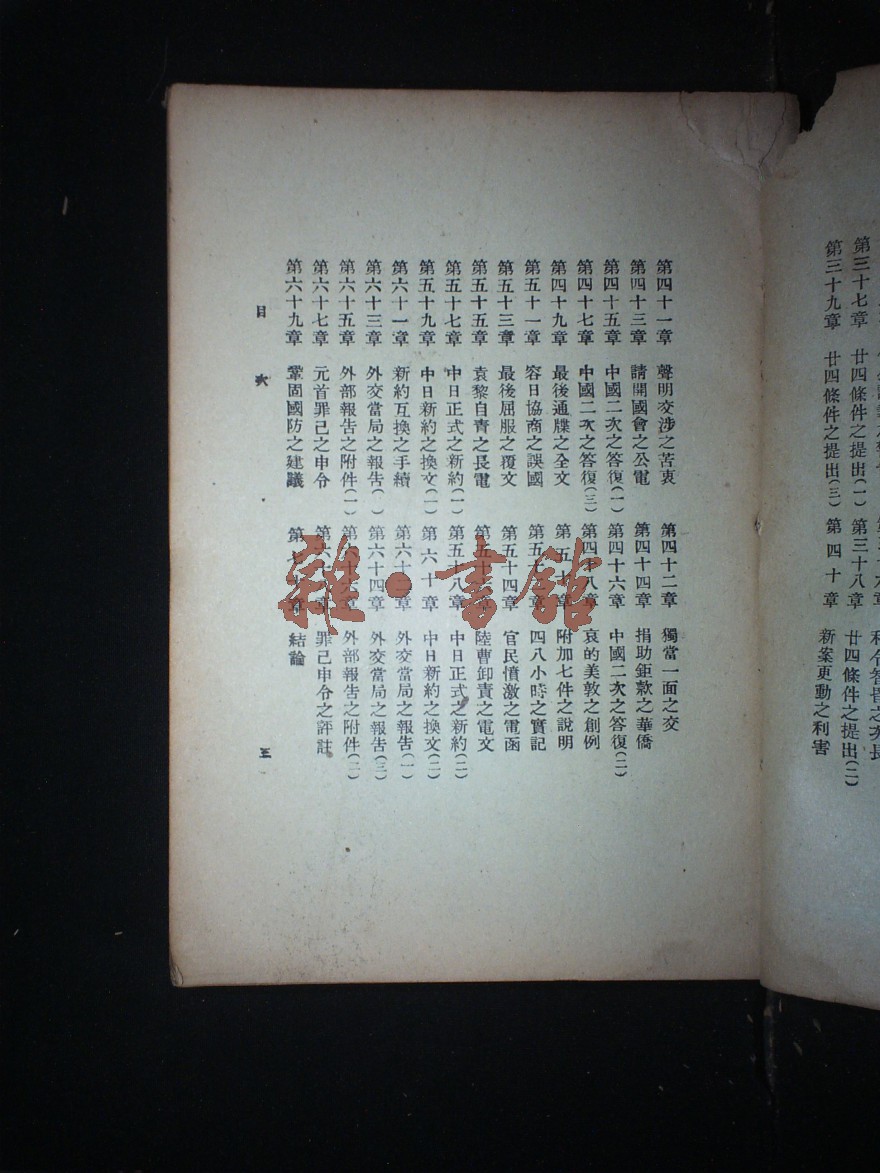 第三十七章 廿四條件之提出(一) 第三十八章 廿四條件之提出(二)
第三十九章 廿四條件之提出(三) 第四十章 新案更動之利害
第四十一章 聲明交涉之苦衷 第四十二章 獨當一面之交
第四十三章 請開國會之公電 第四十四章 捐助鉅款之華僑
第四十五章 中國二次之答復(一) 第四十六章 中國二次之答復(二)
第四十七章 中國二次之答復(三) 第四十八章 哀的美敦之創例
第四十九章 最後通牒之全文 第五十章 附加七件之說明
第五十一章 容日協商之誤國 第五十二章 四八小時之實記
第五十三章 最後屈服之覆文 第五十四章 官民憤激之電函
第五十五章 袁黎自責之長電 第五十六章 陸曹卸責之電文
第五十七章 中日正式之新約(一) 第五十八章 中日正式之新約(二)
第五十九章 中日新約之換文(一) 第六十章 中日新約之換文(二)
第六十一章 新約互換之手續 第六十二章 外交當局之報告(一)
第六十三章 外交當局之報告(二) 第六十四章 外交當局之報告(三)
第六十五章 外部報告之附件(一) 第六十六章 外部報告之附件(二)
第六十七章 元首罪己之申令 第六十八章 罪己申令之評註
第六十九章 鞏固國防之建議 第七十章 結論
目次 三
雜·書館